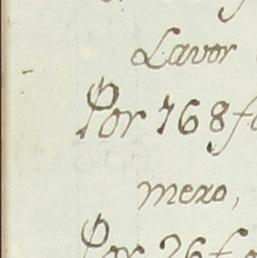 Lavor
Por 768 f
mero,
Por 26